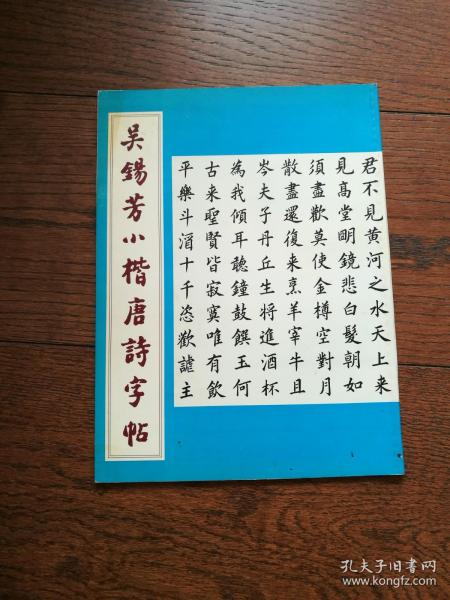 吴錫芳小楷唐詩字帖
君不見黄河之水天上来
見高堂明鏡悲白髮朝如
須盡歡莫使金樽空對月
散盡還復来烹羊宰牛且
岑夫子丹丘生将進酒杯
為我傾耳聽鐘鼓饌玉何
古来聖賢皆寂寞唯有飲
平樂斗酒十千恣歡謔主
孔夫子旧书网
www.kongfz.com